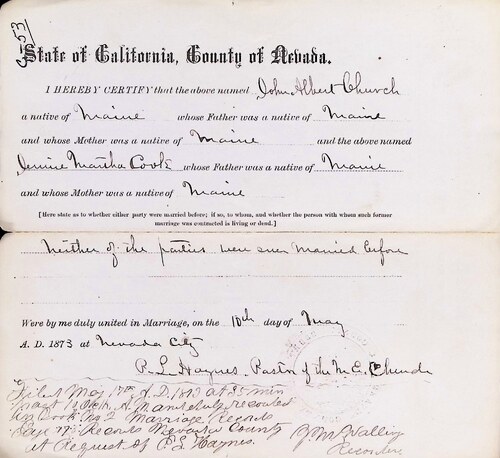 State of California, County of Nevada.
I HEREBY CERTIFY that the above named John Albert Church
a native of Maine whose Father was a native of Maine
and whose Mother was a native of Maine and the above named
Jennie Martha Cook whose Father was a native of Maine
and whose Mother was a native of Maine
[Here state as to whether either party were married before; if so, to whom, and whether the person with whom such former
marriage was contracted is living or dead.]
Neither of the parties were ever married before
Were by me duly united in Marriage, on the 10th day of May
A. D. 1873 at Nevada City
P. L. Haynes, Pastor of the M. E. Church
Filed May 17th A.D. 1873 at 35 min
past o'clk, A.M. and duly recorded
in Book Marriage Records
Page Records Nevada County
at Request of P. L. Haynes.
Recorder